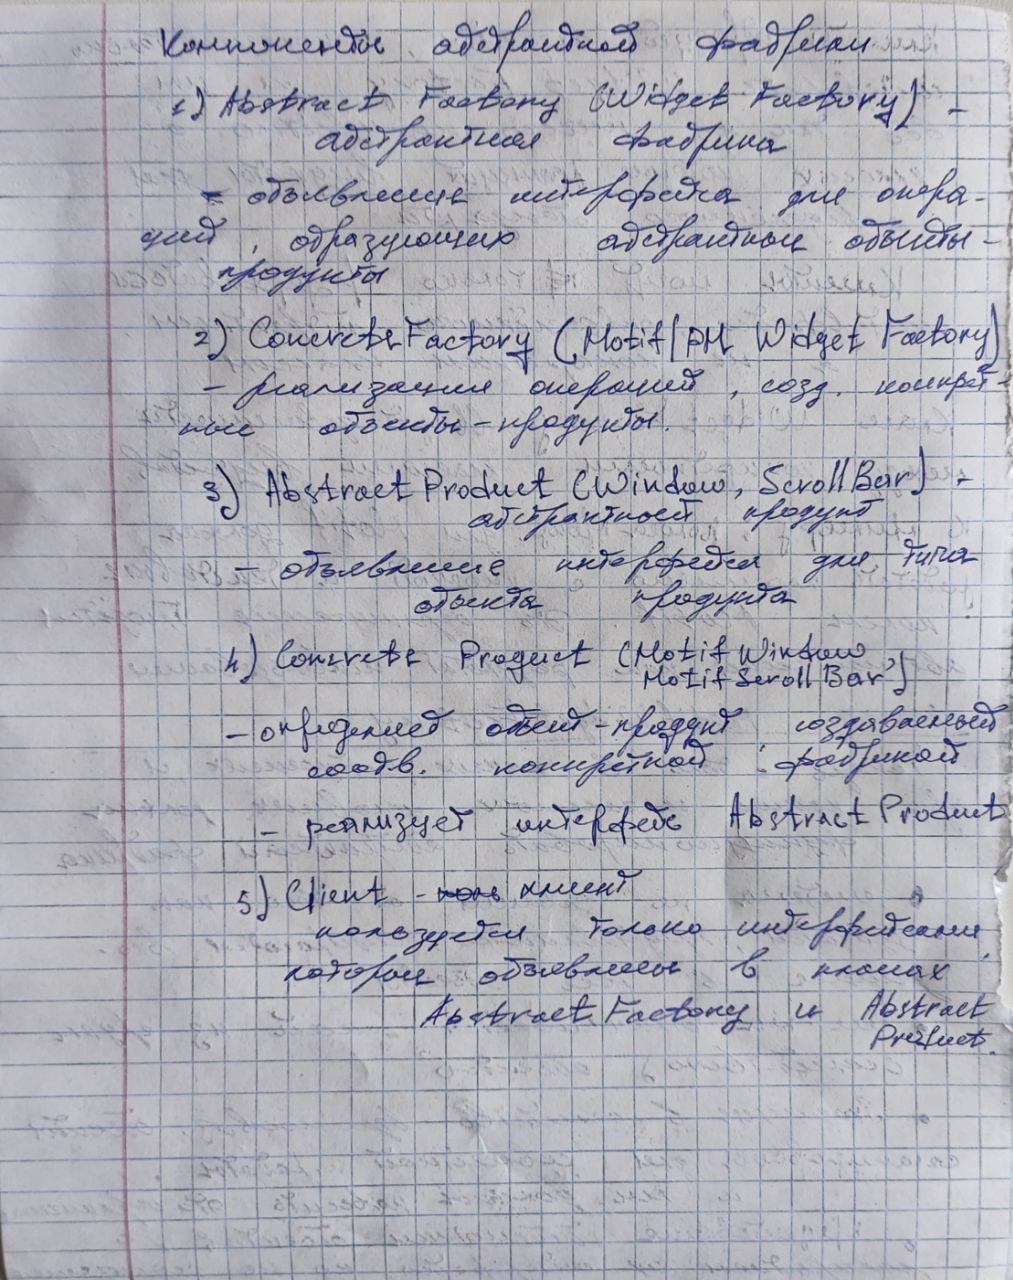 Компоненты абстрактной фабрики
1) Abstract Factory (Widget Factory) -
абстрактная фабрика
- объявление интерфейса для опера-
ций, образующих абстрактные объекты-
продукты
2) ConcreteFactory (Motif/PM Widget Factory)
- реализация операций, созд. конкрет-
ные объекты-продукты.
3) AbstractProduct (Window, ScrollBar) -
абстрактный продукт
- объявление интерфейса для типа
объекта продукта
4) Concrete Product (MotifWindow,
MotifScrollBar)
- определяет объект-продукт создаваемый
соотв. конкретной фабрикой
- реализует интерфейс AbstractProduct
5) Client - клиент
пользуется только интерфейсами
которые объявлены в классах
AbstractFactory и Abstract
Product.